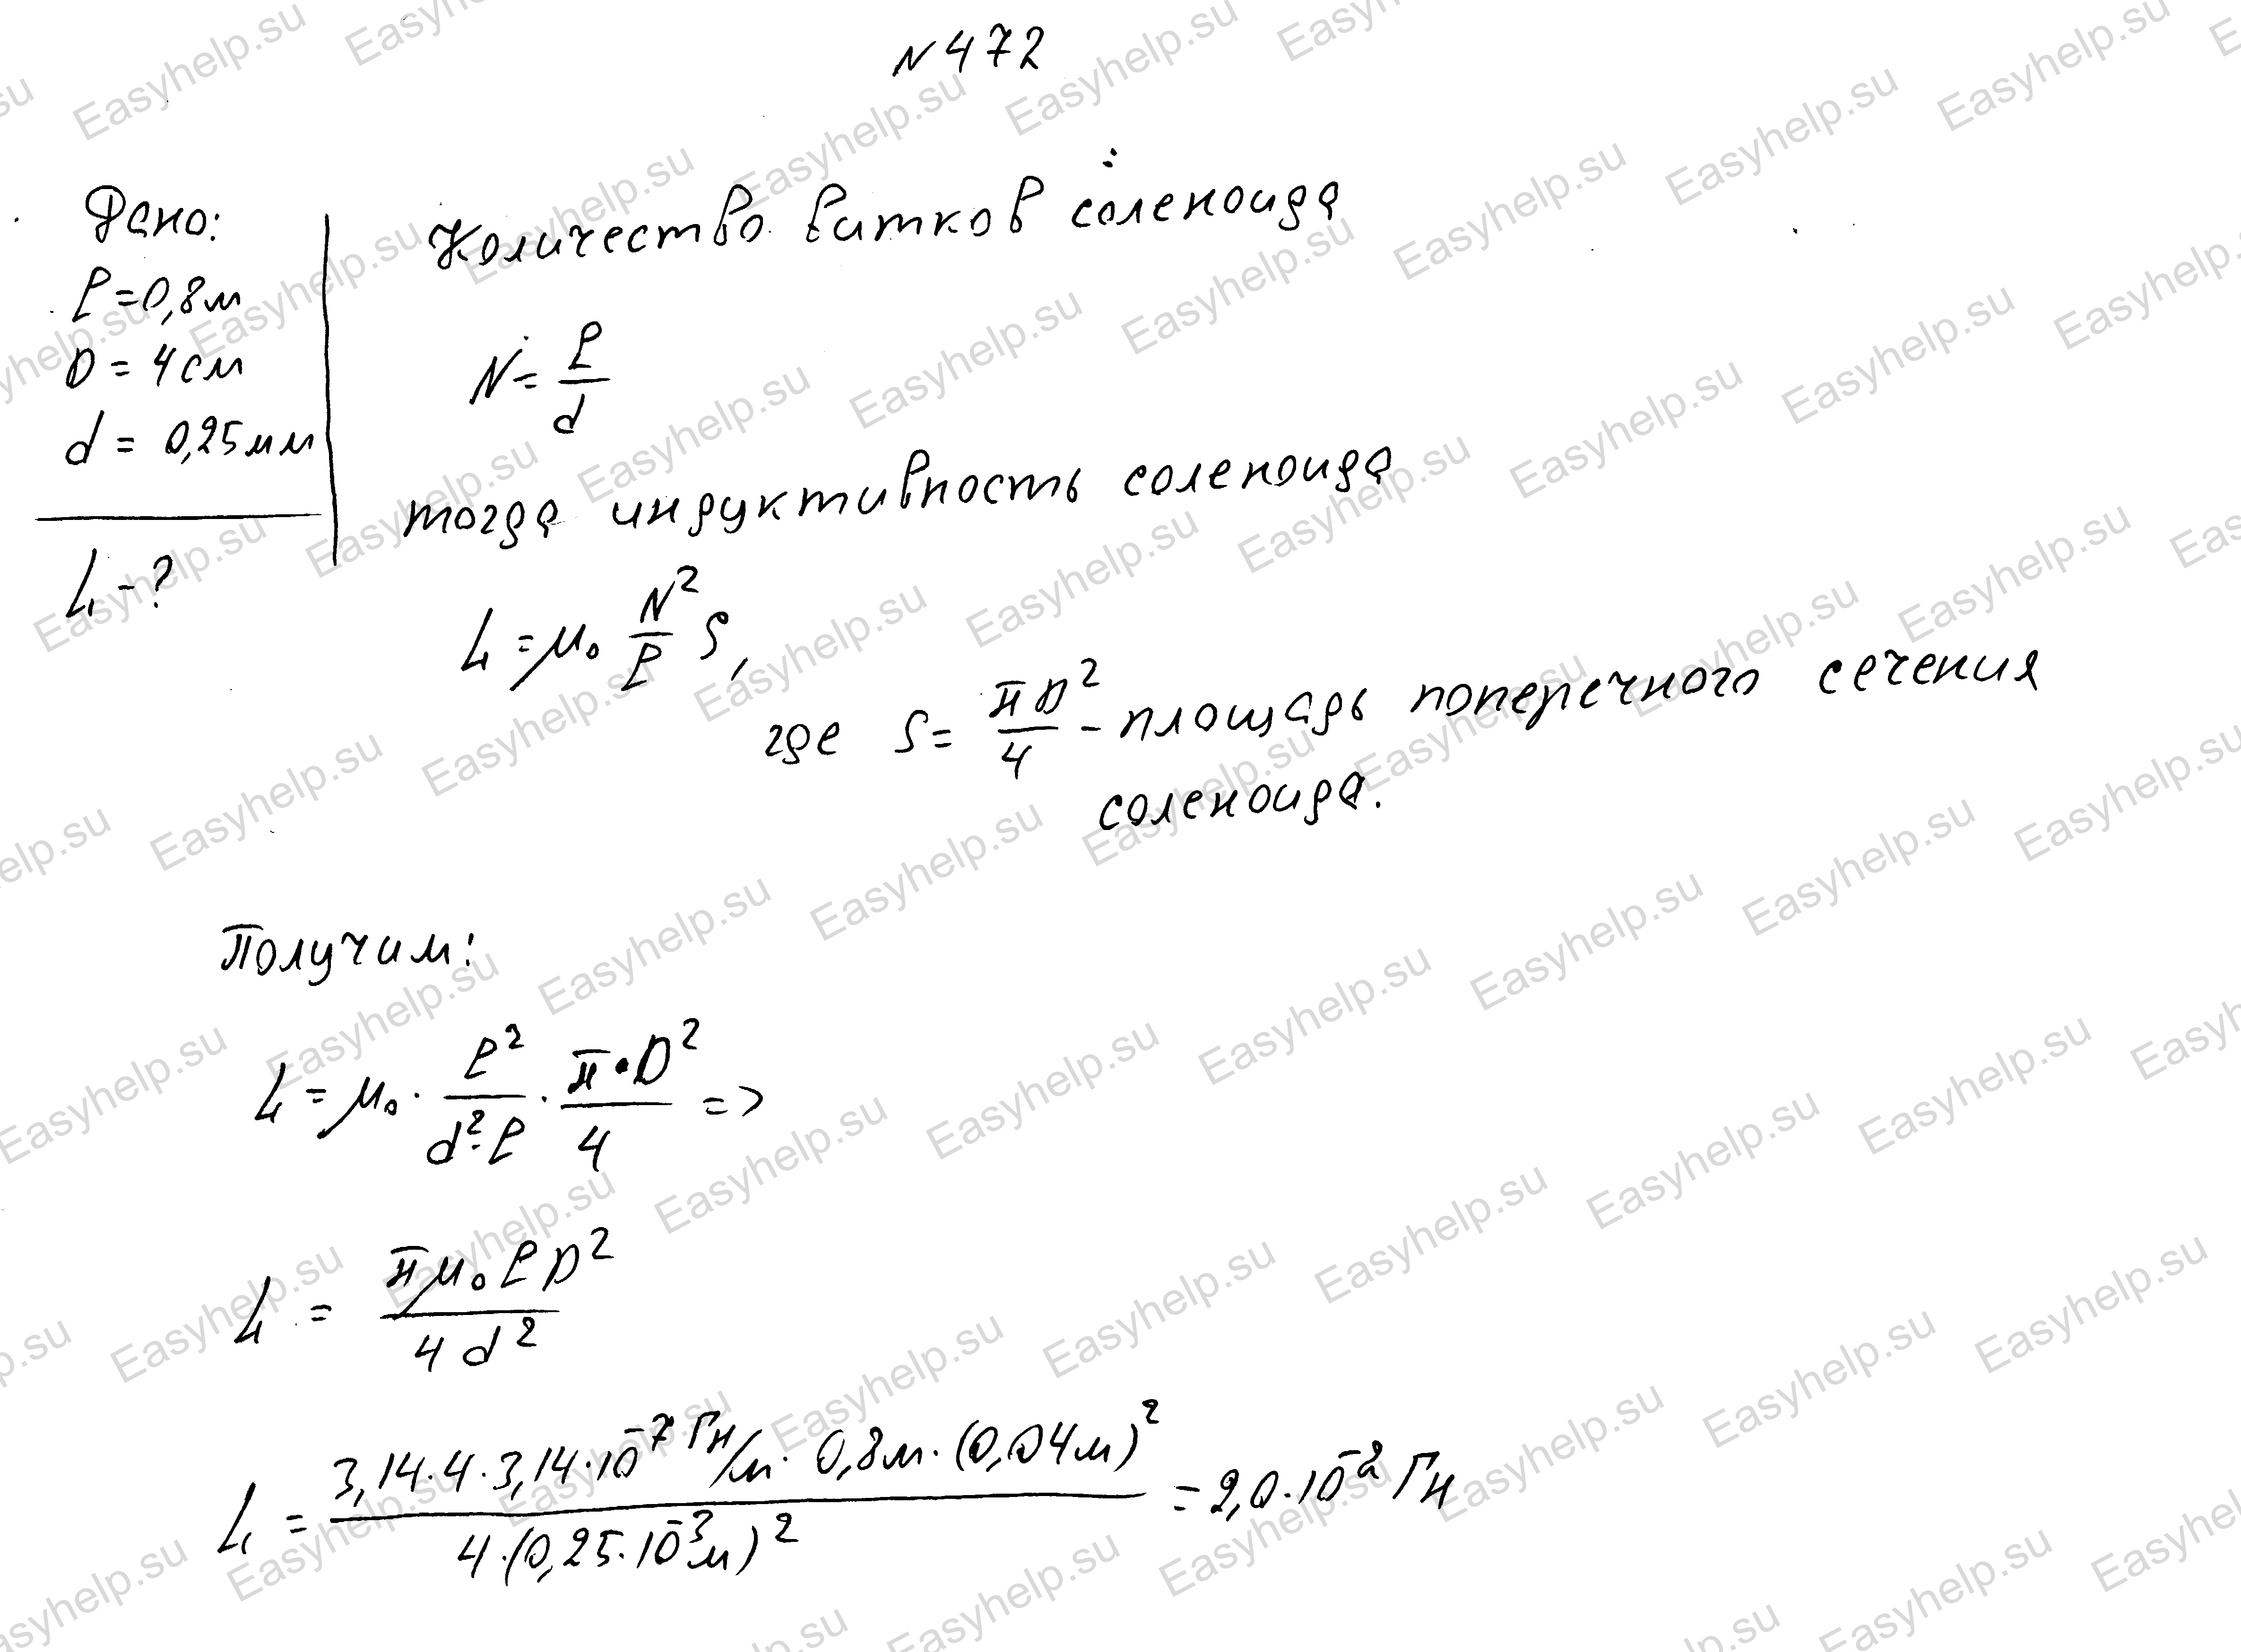 N 472
Дано:
l = 0,8 м
D = 4 см
d = 0,25 мм
L - ?
Количество витков соленоида
N = l/d
тогда индуктивность соленоида
L = μ₀ N²/l S,
где S = πD²/4 - площадь поперечного сечения
соленоида.
Получим:
L = μ₀ · l²/(d²·l) · π·D²/4 =>
L = πμ₀lD²/(4d²)
L = 3,14·4·3,14·10⁻⁷ Гн/м · 0,8м·(0,04м)²/(4·(0,25·10⁻³м)²) = 2,0·10⁻² Гн
Easyhelp.su